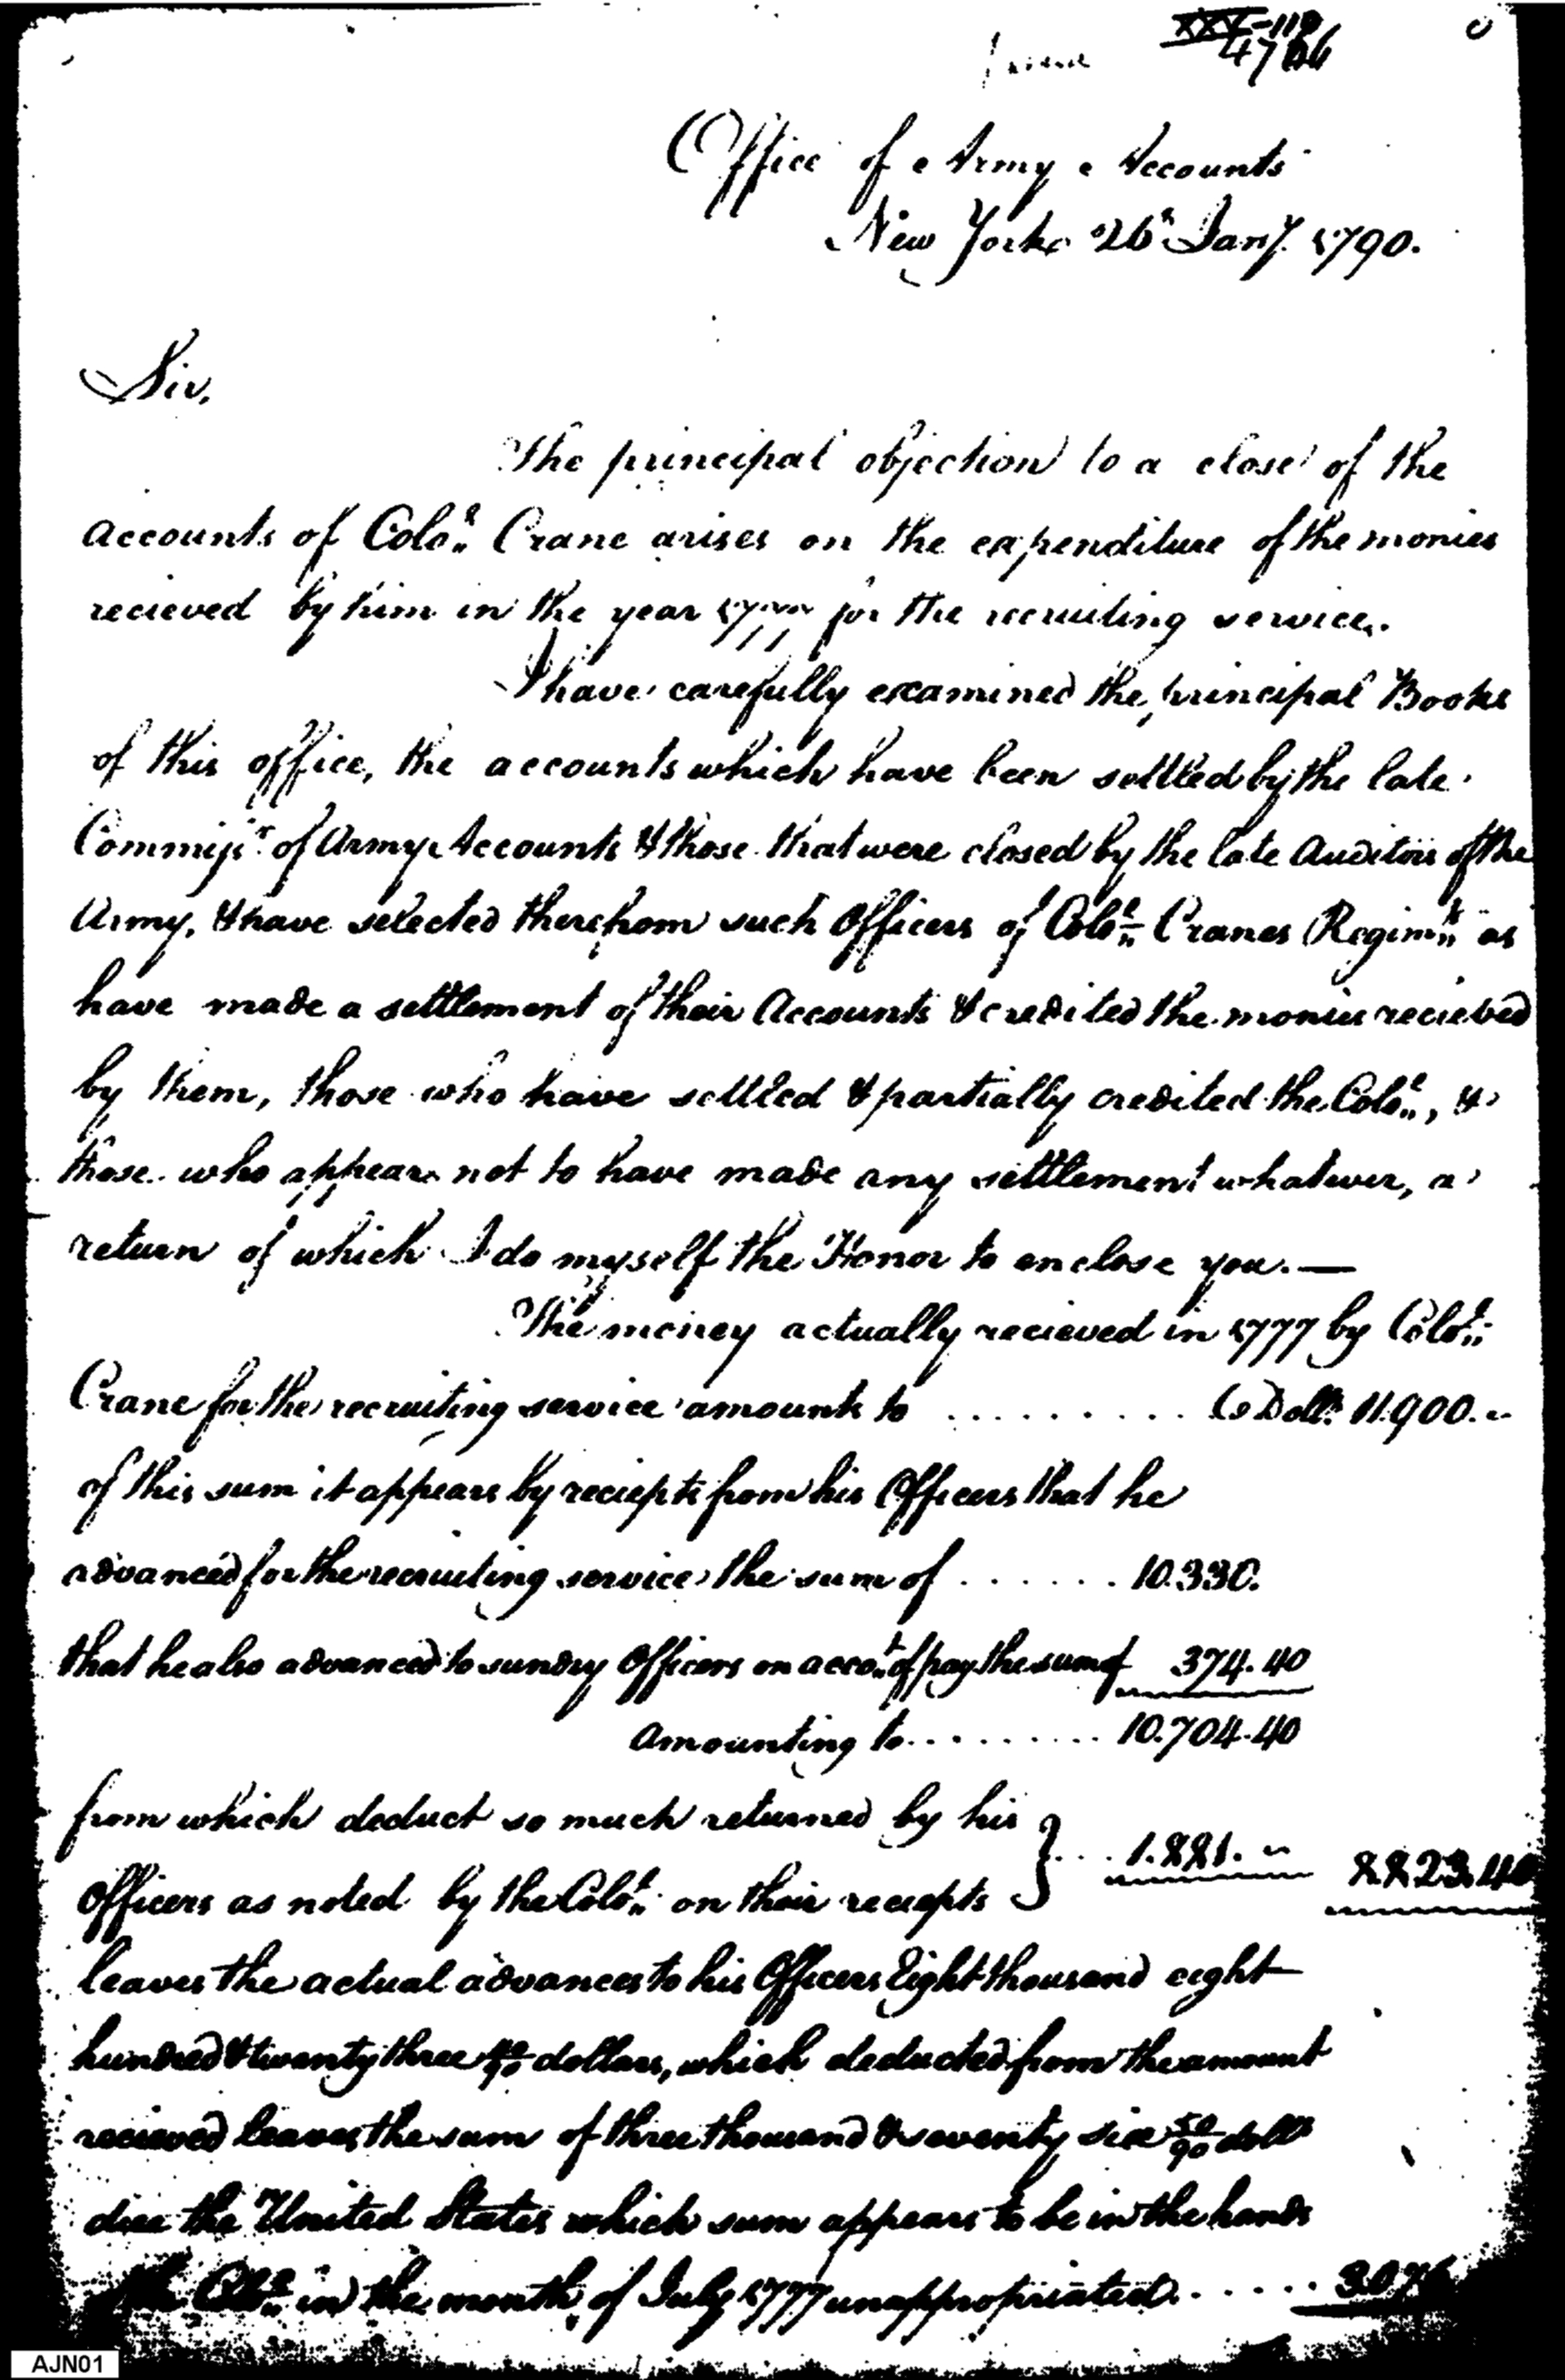 XXV-119
4706
Office of Army Accounts
New York 26th Jany. 1790.
Sir,
The principal objection to a close of the
accounts of Colol. Crane arises on the expenditure of the monies
recieved by him in the year 1777 for the recruiting service.
I have carefully examined the principal Books
of this office, the accounts which have been settled by the late
Commissr. of Army Accounts & those that were closed by the late Auditors of the
Army, & have selected therefrom such Officers of Colol. Cranes Regimt. as
have made a settlement of their Accounts & credited the monies recieved
by them, those who have settled & partially credited the Colol., &
those who appear not to have made any settlement whatever, a
return of which I do myself the Honor to enclose you.—
The money actually recieved in 1777 by Colol.
Crane for the recruiting service amounts to .......... Dolls. 11.900.
of this sum it appears by reciepts from his Officers that he
advanced for the recruiting service the sum of ...... 10.330.
that he also advanced to sundry Officers on accot. of pay the sum of 374.40
Amounting to ......... 10.704.40
from which deduct so much returned by his
Officers as noted by the Colol. on their reciepts } ... 1.881. " 8823.40
leaves the actual advances to his Officers Eight thousand eight
hundred & twenty three 40/90 dollars, which deducted from the amount
recieved leaves the sum of three thousand & seventy six 50/90 dolls
due the United States which sum appears to be in the hands
the Colol. in the month of July 1777 unappropriated ...... 3076
AJN01